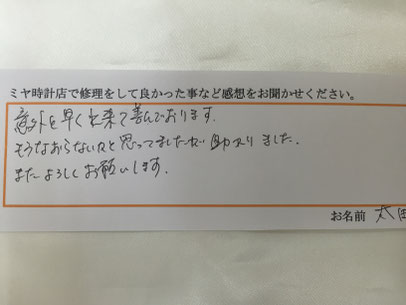 ミヤ時計店で修理をして良かった事など感想をお聞かせください。
意外と早く出来て喜んでおります。
もうなおらないかと思ってましたが助かりました。
またよろしくお願いします。
お名前 太田